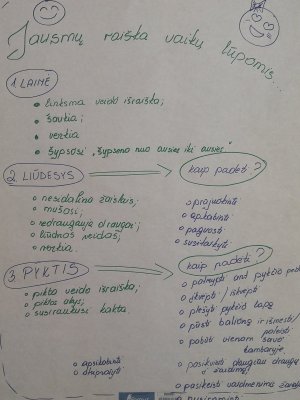 Jausmų raiška vaikų lūpomis...
1. LAIMĖ
linksma veido išraiška;
šaukia;
verkia
šypsosi „šypsena nuo ausies iki ausies"
2. LIŪDESYS
kaip padėti?
nesidalina žaislais;
mušasi;
nedraugauja draugai;
liūdnas veidas;
verkia.
prajuokinti
apkabinti
paguosti
susitaikyti
3. PYKTIS
kaip padėti?
pikta veido išraiška;
piktos akys;
susiraukusi kakta.
patrepti ant pykčio
įkvėpti / iškvėpti
plėšyti pykčio lapą
pūsti balioną ir išmesti/
paleisti
pabūti vienam savo
kambaryje
pasikviesti daugiau draugų
žaidimą;
pasikeisti vaidmenimis
apsikabinti